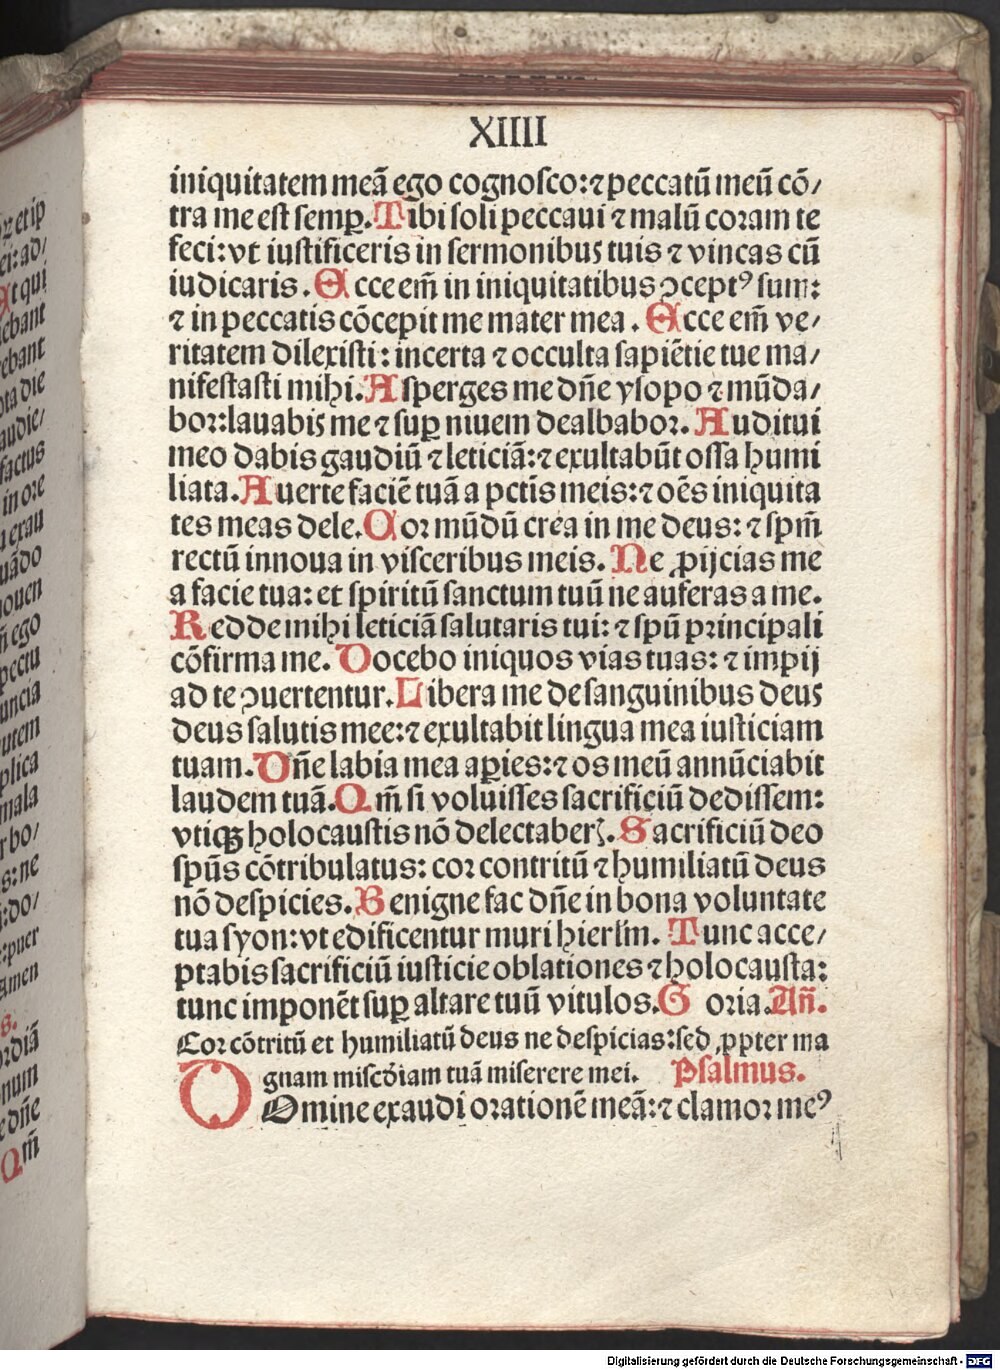 XIIII
iniquitatem meā ego cognoſco:⁊ peccatū meū cō/
tra me eſt ſemꝑ. Tibi ſoli peccaui ⁊ malū coram te
feci: vt iuſtificeris in ſermonibus tuis ⁊ vincas cū
iudicaris. Ecce em̄ in iniquitatibus ꝯceptꝰ ſum:
⁊ in peccatis cōcepit me mater mea. Ecce em̄ ve/
ritatem dilexiſti: incerta ⁊ occulta ſapiētie tue ma/
nifeſtaſti mihi. Aſperges me dn̄e yſopo ⁊ mūda/
bor:lauabis me ⁊ ſuꝑ niuem dealbabor. Auditui
meo dabis gaudiū ⁊ leticiā:⁊ exultabūt oſſa humi
liata. Auerte faciē tuā a pctīs meis:⁊ oēs iniquita
tes meas dele. Cor mūdū crea in me deus: ⁊ ſpm̄
rectū innoua in viſceribus meis. Ne ꝓijcias me
a facie tua: et ſpiritū ſanctum tuū ne auferas a me.
Redde mihi leticiā ſalutaris tui: ⁊ ſpū principali
cōfirma me. Docebo iniquos vias tuas: ⁊ impij
ad te ꝯuertentur. Libera me de ſanguinibus deus
deus ſalutis mee:⁊ exultabit lingua mea iuſticiam
tuam. Dn̄e labia mea aꝑies:⁊ os meū annūciabit
laudem tuā. Qm̄ ſi voluiſſes ſacrificiū dediſſem:
vtiqꝫ holocauſtis nō delectaberꝭ. Sacrificiū deo
ſpūs cōtribulatus: cor contritū ⁊ humiliatū deus
nō deſpicies. Benigne fac dn̄e in bona voluntate
tua ſyon: vt edificentur muri hierlm̄. Tunc acce/
ptabis ſacrificiū iuſticie oblationes ⁊ holocauſta:
tunc imponēt ſuꝑ altare tuū vitulos. G oria. Añ.
Cor cōtritū et humiliatū deus ne deſpicias:ſed ꝓpter ma
gnam miſcd̄iam tuā miſerere mei. Pſalmus.
DOmine exaudi orationē meā:⁊ clamor meꝰ
Digitalisierung gefördert durch die Deutsche Forschungsgemeinschaft - DFG